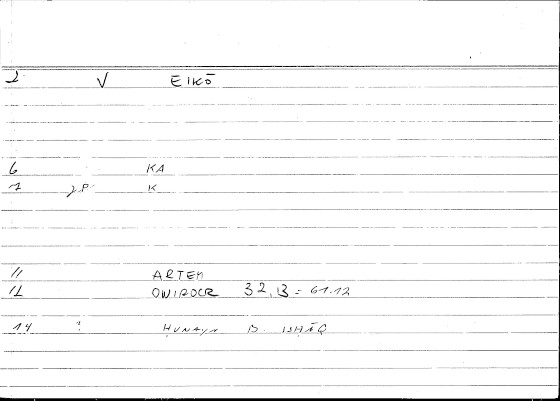 2 V EIKŌ
6 KA
7 γρ K
11 ARTEM
12 ONIROCR 32,13 = 61.12
14 ? ḤUNAYN B. ISḤĀQ